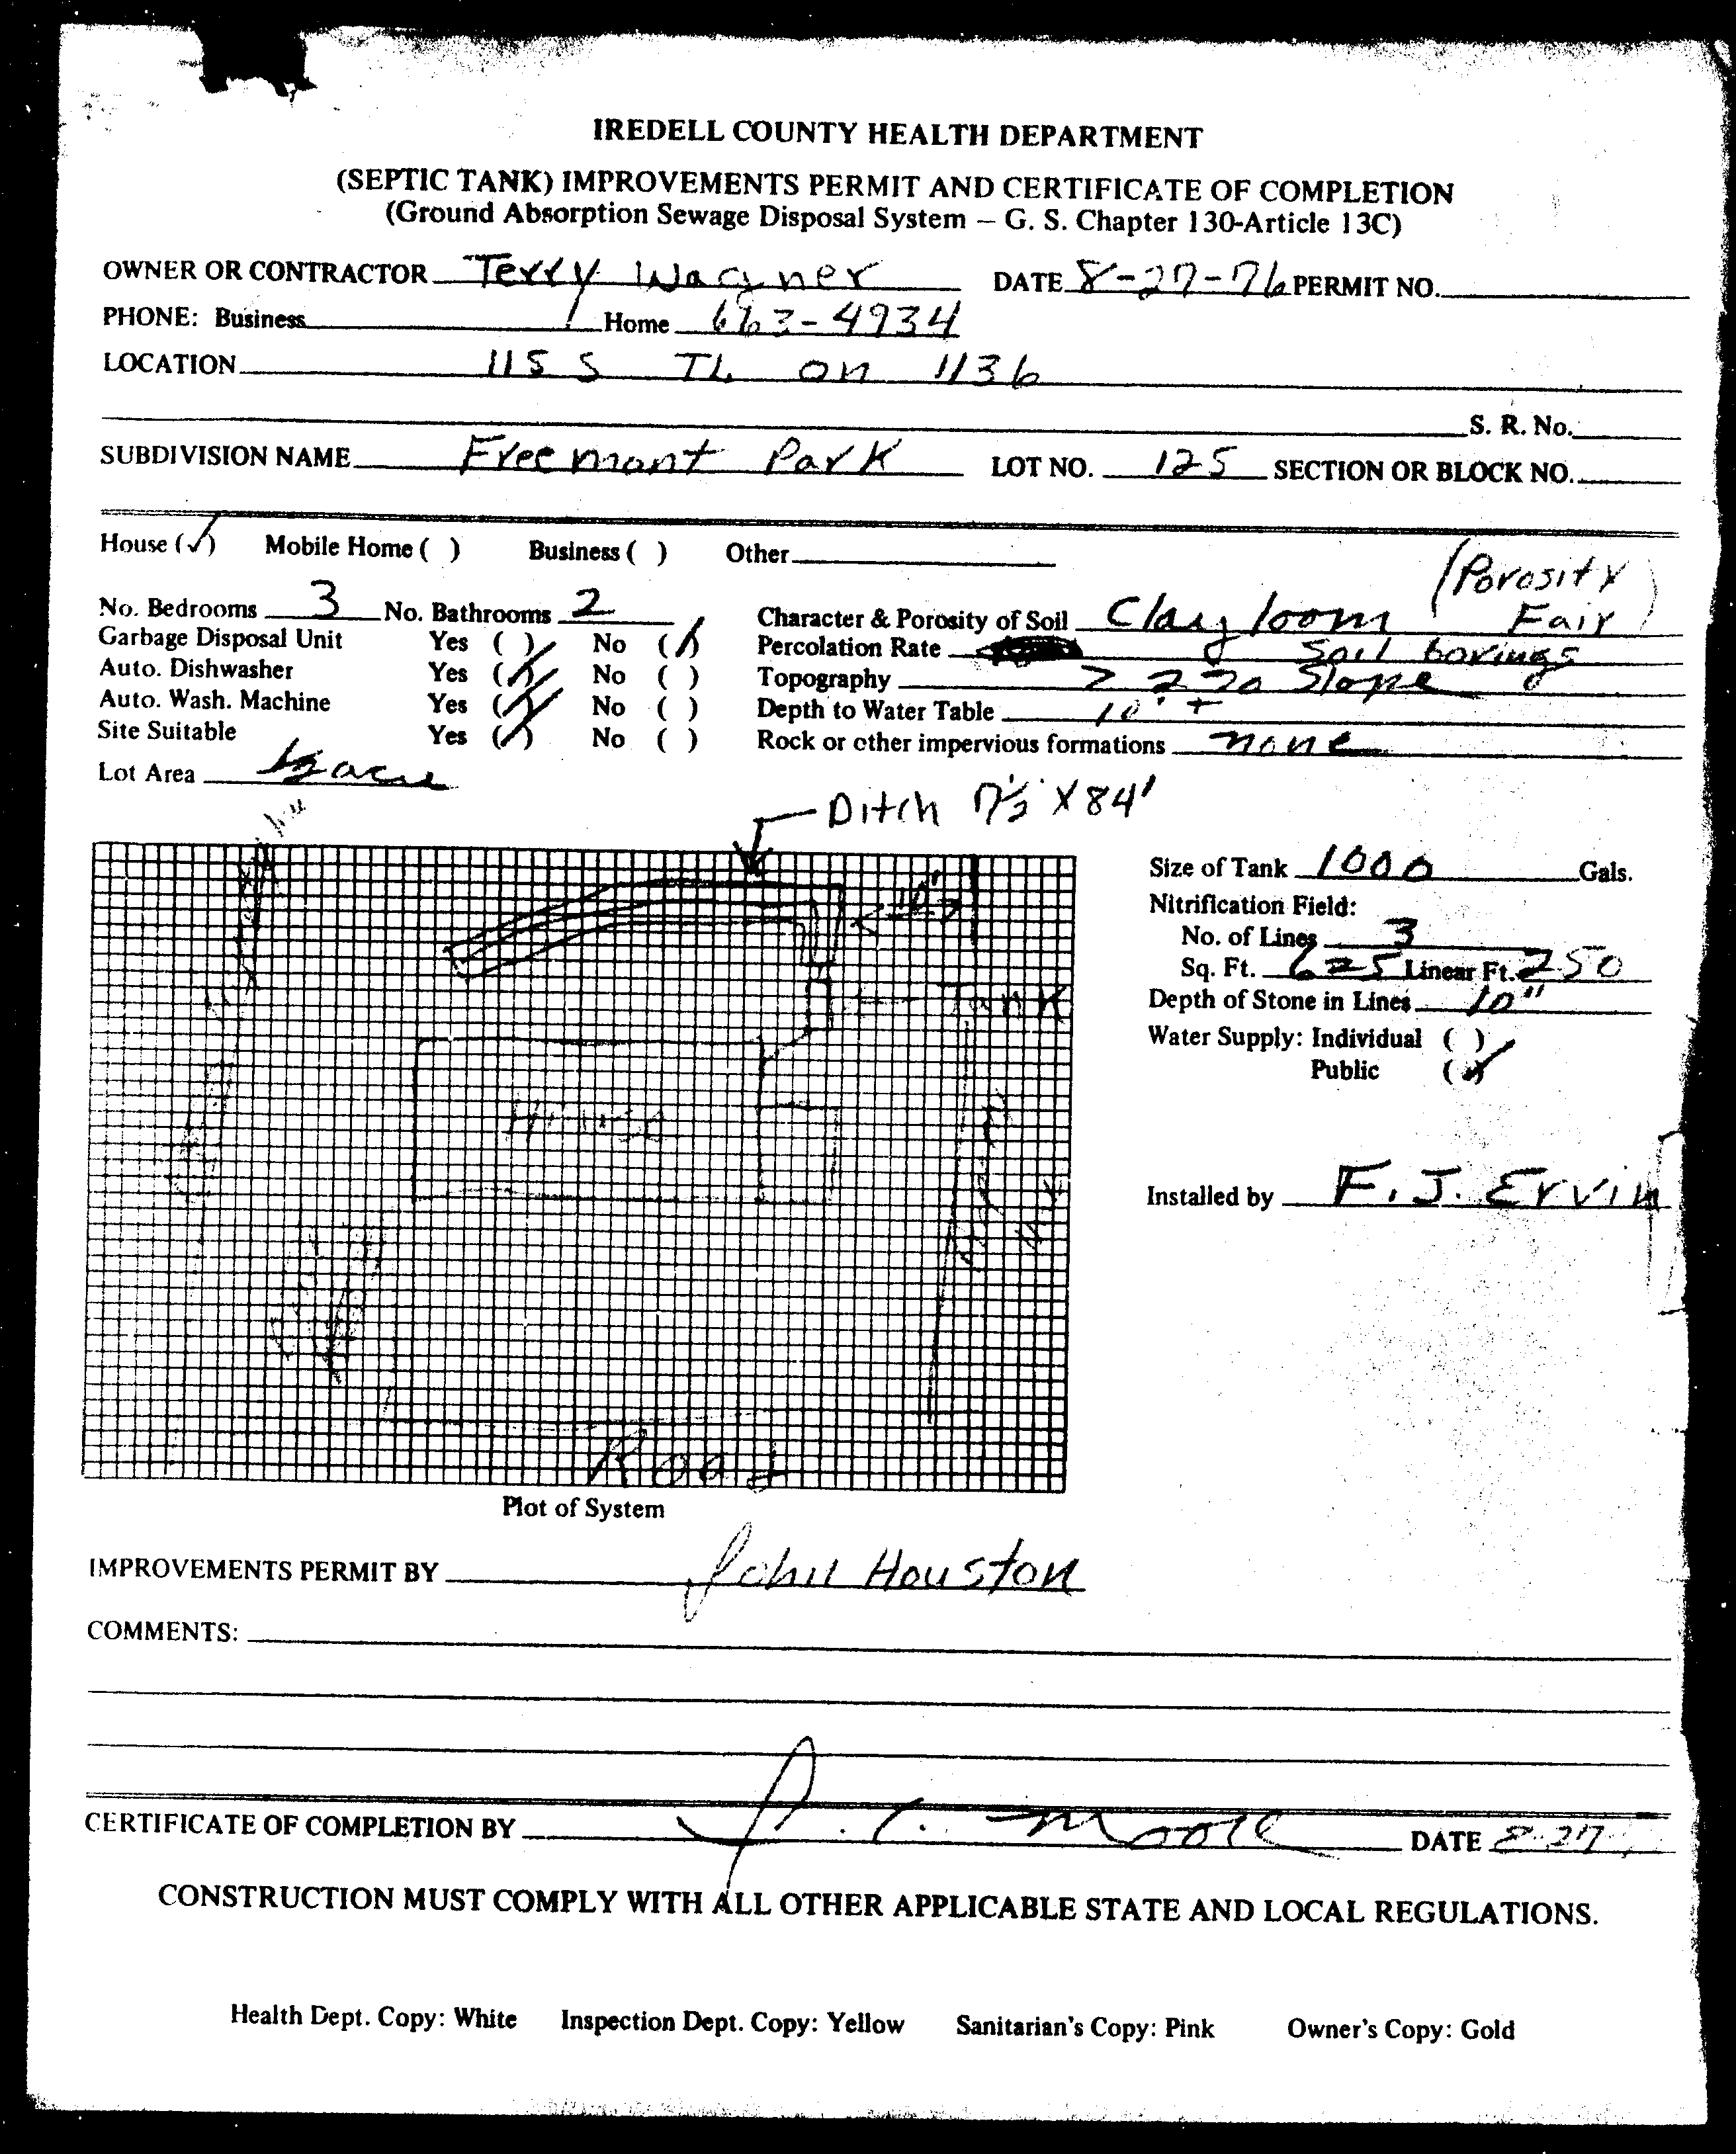 IREDELL COUNTY HEALTH DEPARTMENT
(SEPTIC TANK) IMPROVEMENTS PERMIT AND CERTIFICATE OF COMPLETION
(Ground Absorption Sewage Disposal System – G. S. Chapter 130-Article 13C)
OWNER OR CONTRACTOR Terry Wagner DATE 8-27-76 PERMIT NO.
PHONE: Business Home 663-4934
LOCATION 115 S TL on 1136
S. R. No.
SUBDIVISION NAME Freemont Park LOT NO. 125 SECTION OR BLOCK NO.
House (✓) Mobile Home ( ) Business ( ) Other
(Porosity
No. Bedrooms 3 No. Bathrooms 2 Character & Porosity of Soil Clay loom Fair)
Garbage Disposal Unit Yes ( ) No (✓) Percolation Rate Soil borings
Auto. Dishwasher Yes (✓) No ( ) Topography > 2% Slope
Auto. Wash. Machine Yes (✓) No ( ) Depth to Water Table 10' +
Site Suitable Yes (✓) No ( ) Rock or other impervious formations none
Lot Area acre
Ditch 7½' X 84'
Size of Tank 1000 Gals.
Nitrification Field:
No. of Lines 3
Sq. Ft. 625 Linear Ft. 250
Tank
Depth of Stone in Lines 10"
Water Supply: Individual ( )
Public (✓)
House
Installed by F. J. Ervin
Road
Plot of System
IMPROVEMENTS PERMIT BY John Houston
COMMENTS:
CERTIFICATE OF COMPLETION BY Moore DATE 8-27
CONSTRUCTION MUST COMPLY WITH ALL OTHER APPLICABLE STATE AND LOCAL REGULATIONS.
Health Dept. Copy: White Inspection Dept. Copy: Yellow Sanitarian's Copy: Pink Owner's Copy: Gold